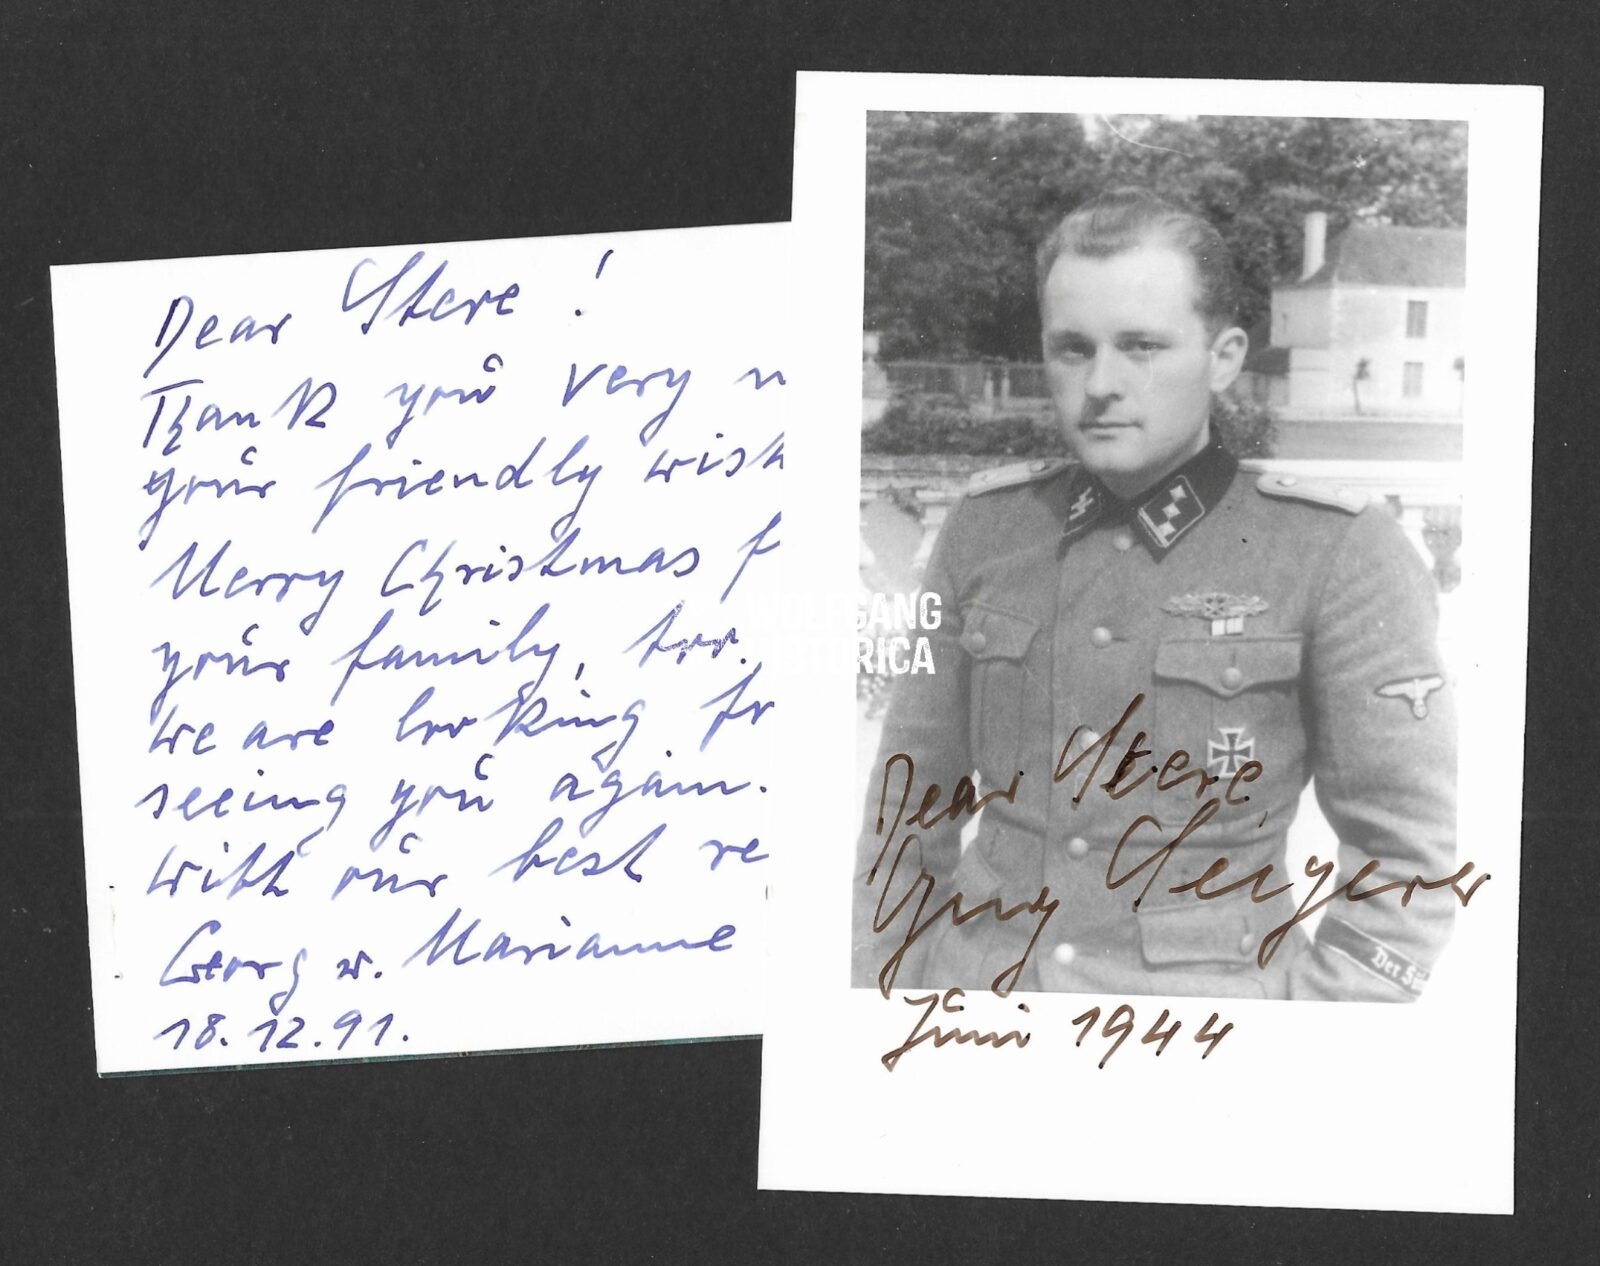 Dear Steve!
Thank you very
your friendly wish
Merry Christmas f
your family, too.
we are looking fo
seeing you again.
with our best re
Georg u. Marianne
18.12.91.
WOLFGANG
HISTORICA
Dear Steve
Juni 1944